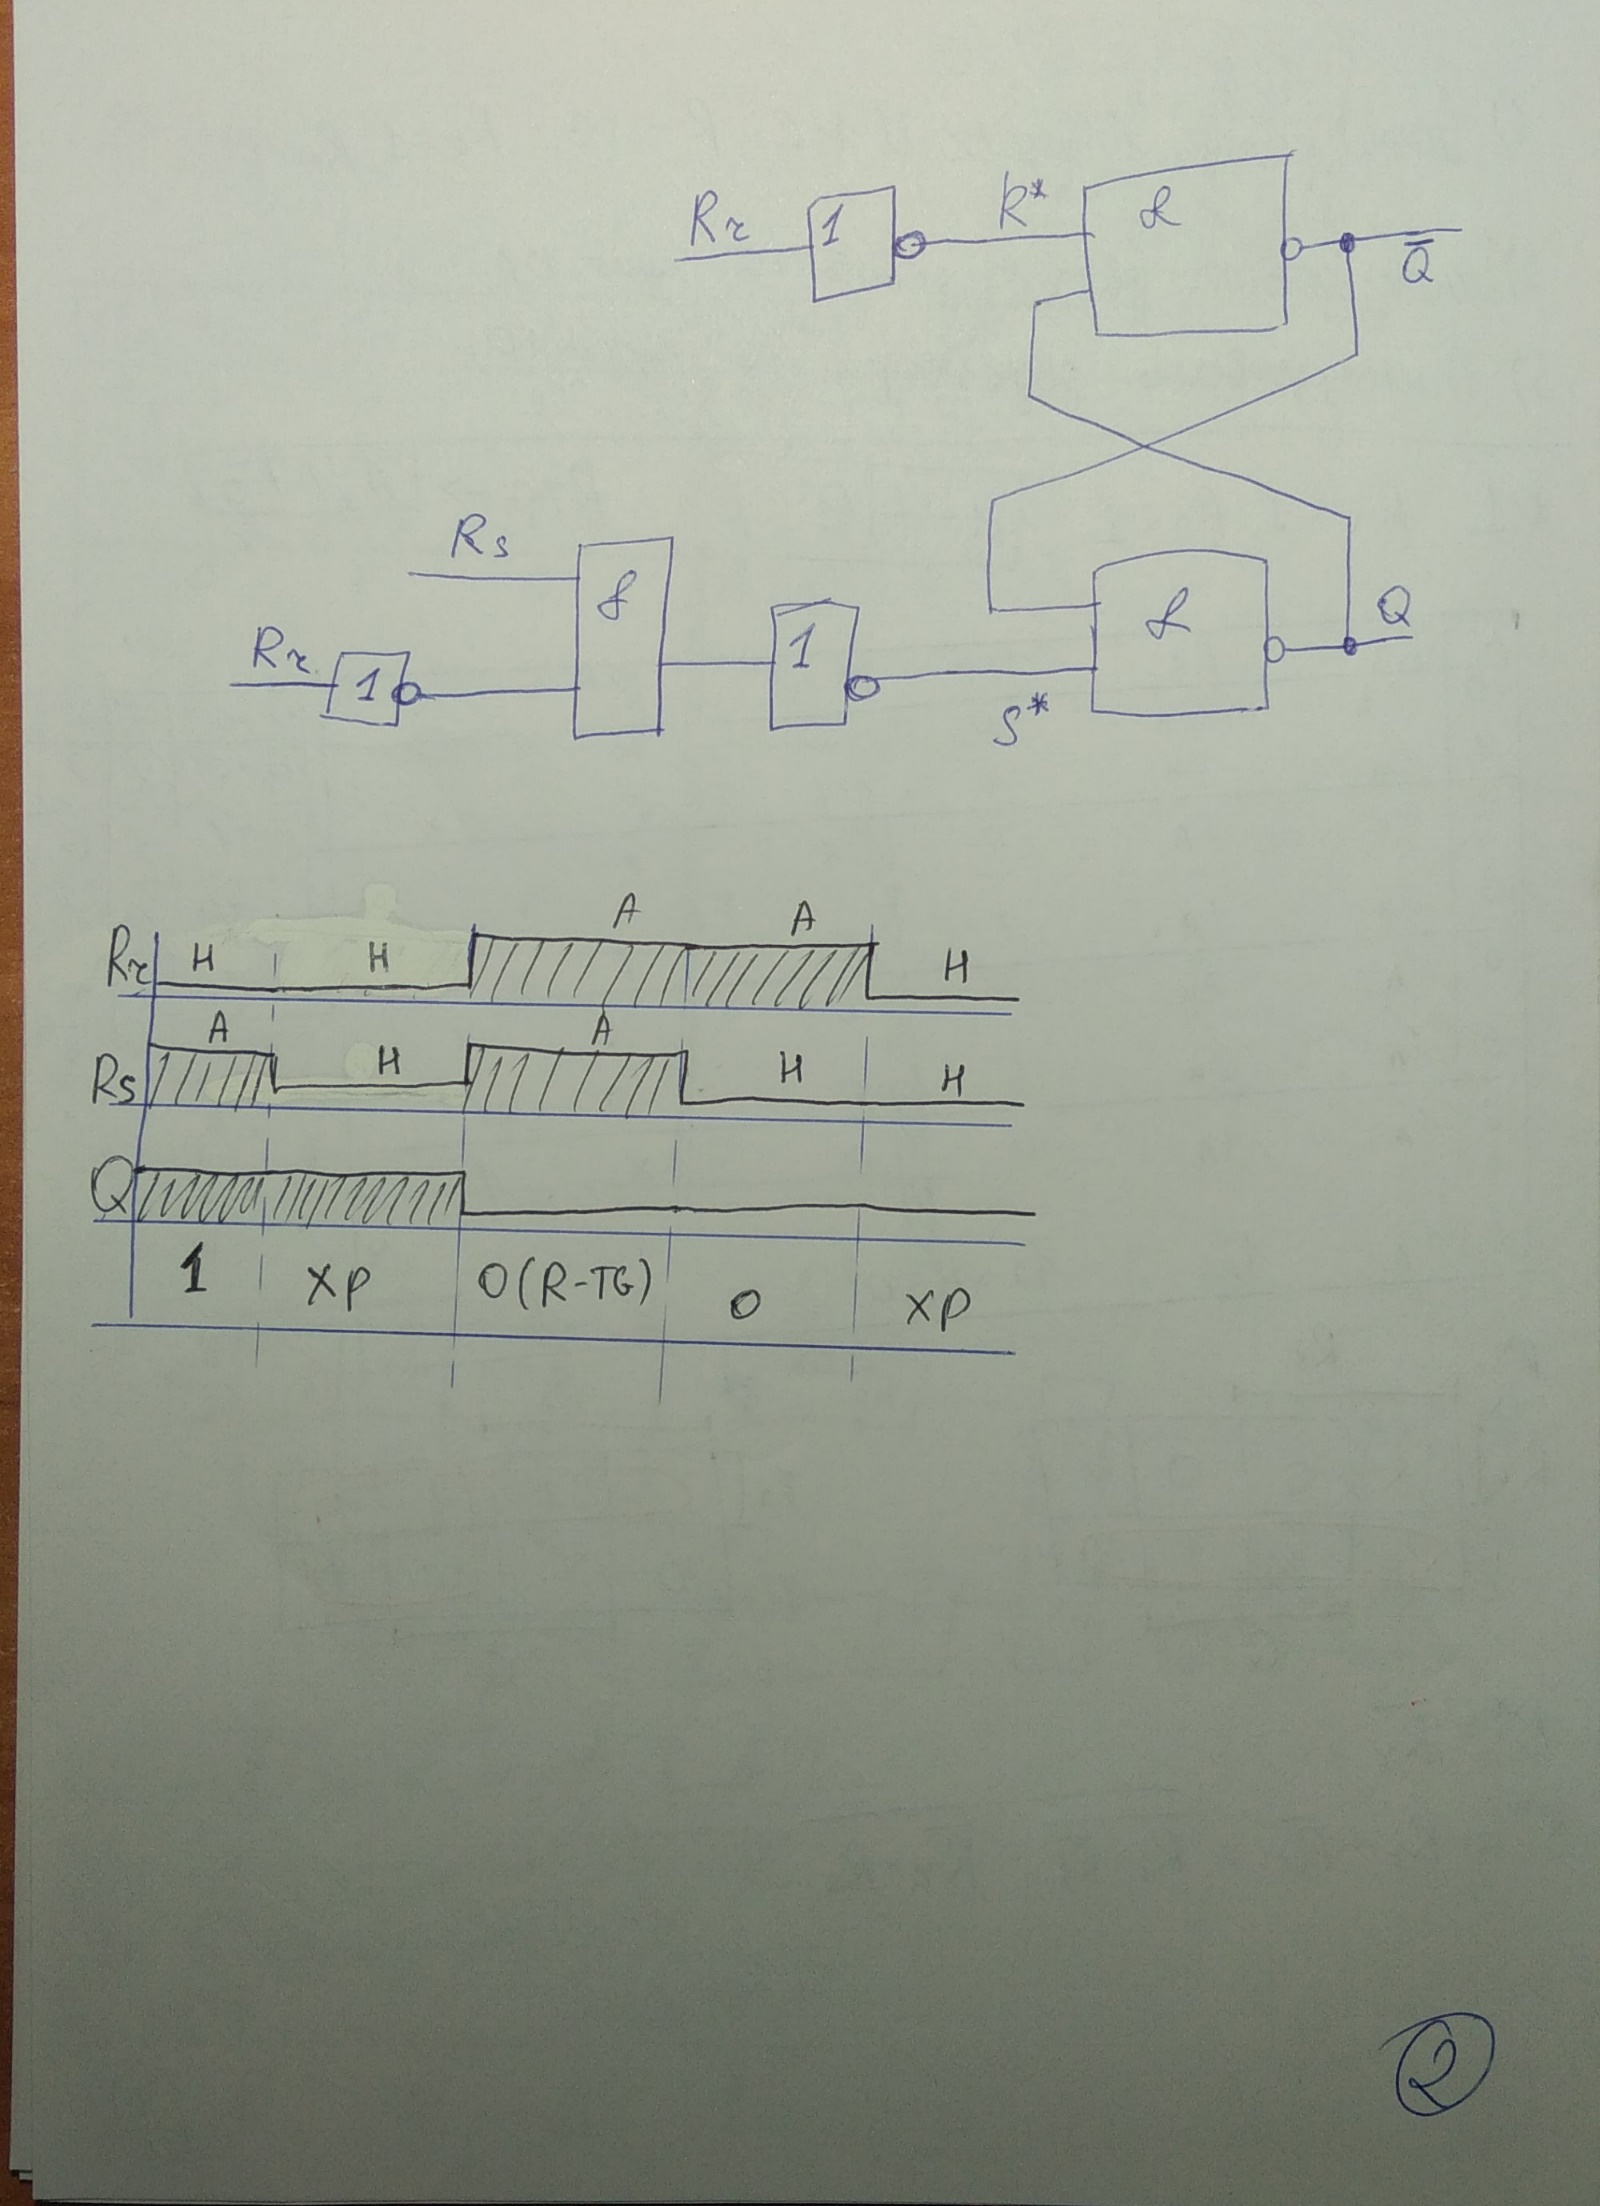 Rr 1 R* & Q̅
Rs & Q
Rr 1 & 1 S*
A A
Rr H H H
A A
Rs H H H
Q
1 XP 0(R-TG) 0 XP
2